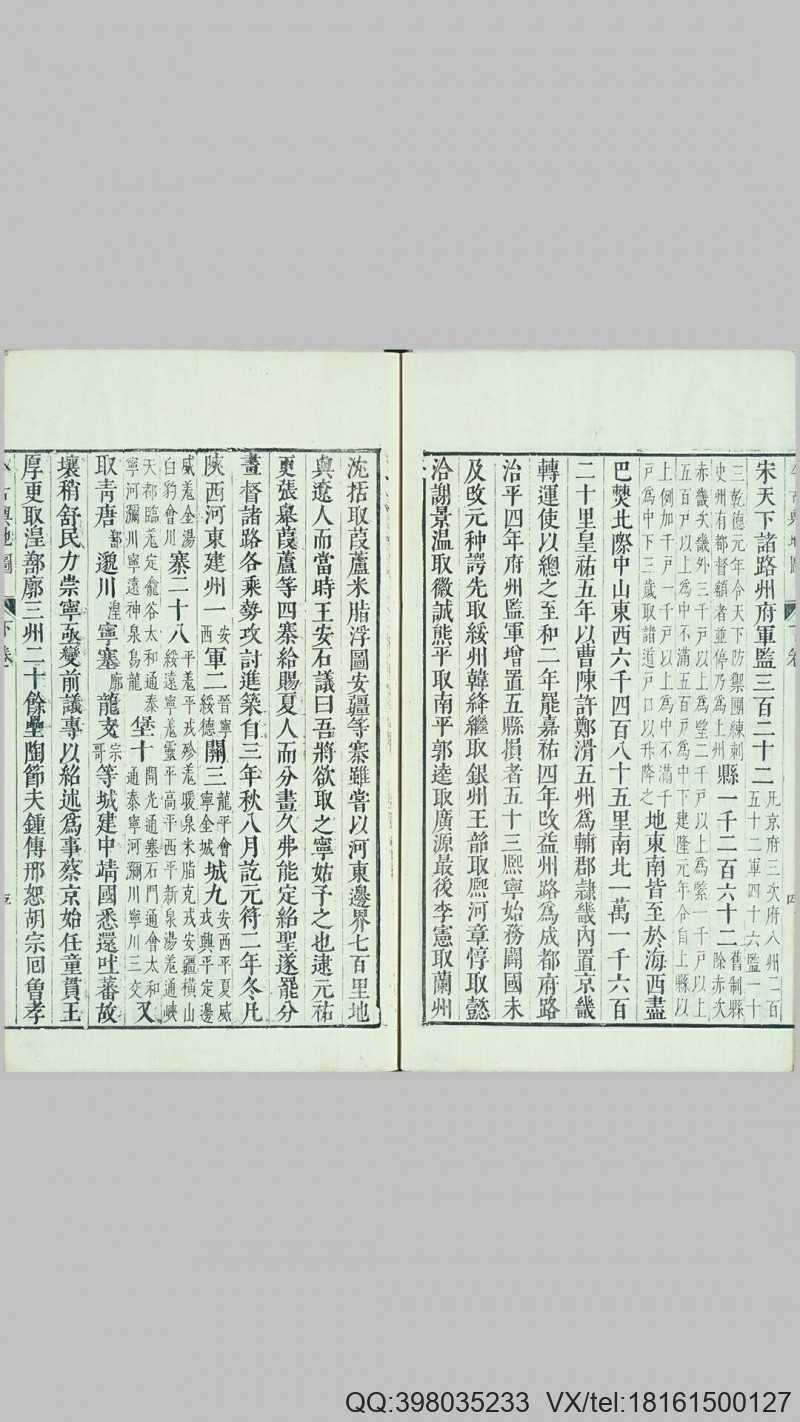 宋天下諸路州府軍監三百二十二凡京府三次府八州二百五十二軍四十六監一十
三乾德元年令天下防禦團練刺史州有都督額者並停乃爲上州縣一千二百六十二舊制縣除赤次
赤畿次畿外三千戸以上爲望二千戸以上爲緊一千戸以上五百戸以上爲中不滿五百戸爲中下建隆元年令自上縣以
上例加千戸一千戸以上爲中不滿千戸爲中下三歲取諸道戸口以升降之地東南皆至於海西盡
巴僰北際中山東西六千四百八十五里南北一萬一千六百
二十里皇祐五年以曹陳許鄭滑五州爲輔郡隷畿内置京畿
轉運使以總之至和二年罷嘉祐四年改益州路爲成都府路
治平四年府州監軍增置五縣損者五十三熙寧始務闢國未
及改元种諤先取綏州韓絳繼取銀州王韶取熙河章惇取懿
洽謝景温取徽誠熊平取南平郭逵取廣源最後李憲取蘭州
沈括取葭蘆米脂浮圖安疆等寨雖嘗以河東邊界七百里地
與遼人而當時王安石議曰吾將欲取之寧姑予之也逮元祐
更張舉葭蘆等四寨給賜夏人而分畫久弗能定紹聖遂罷分
畫督諸路各乘勢攻討進築自三年秋八月訖元符二年冬凡
陝西河東建州一西安軍二晉寧綏德關三龍平會寧金城城九安西平夏威戎興平定邊
威羌金湯白豹會川寨二十八平羌平戎殄羌暖泉米脂克戎安疆橫山綏遠寧羌靈平高平西平新泉湯羌通峽
天都臨羌定龕谷太和通泰寧河彌川寧遠神泉烏龍堡十開光通塞石門通會太和通泰寧河彌川寧川三交又
取青唐鄯邈川湟寧塞廓龍支宗哥等城建中靖國悉還吐蕃故
壤稍舒民力崇寧亟變前議專以紹述爲事蔡京始任童貫王
厚更取湟鄯廓三州二十餘壘陶節夫鍾傳邢恕胡宗囘曾孝
下卷
QQ:398035233 VX/tel:18161500127